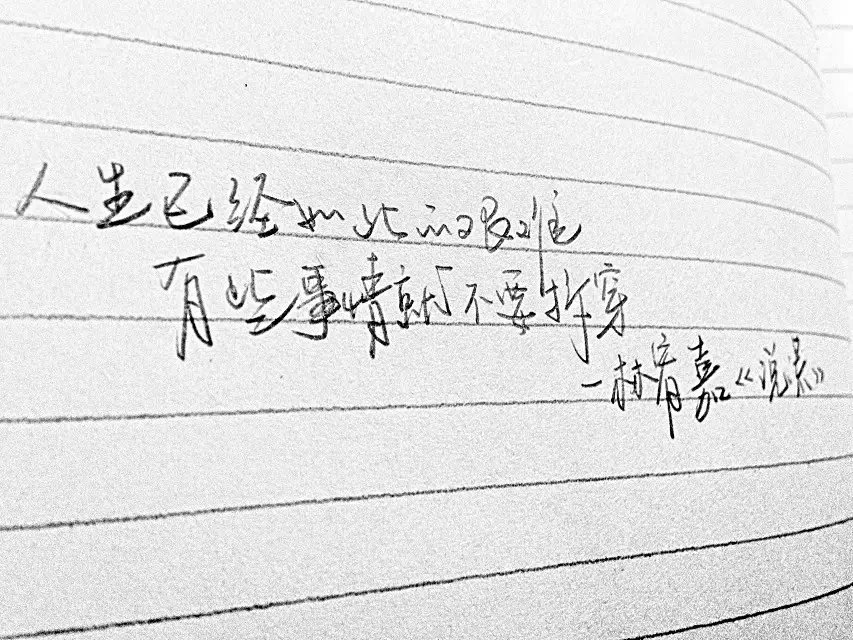 人生已经如此的艰难
有些事情就不要拆穿
—林宥嘉《说谎》